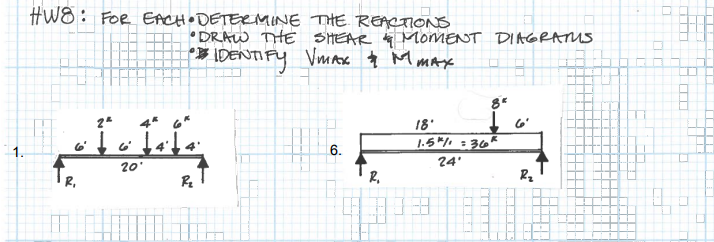 HW8: FOR EACH • DETERMINE THE REACTIONS
• DRAW THE SHEAR & MOMENT DIAGRAMS
• IDENTIFY VMAX & MMAX
8ᴷ
2ᴷ 4ᴷ 6ᴷ
18' 6'
1. 6' 6' 4' 4'
6. 1.5ᴷ/' = 36ᴷ
20' 24'
R₁ R₂ R₁ R₂